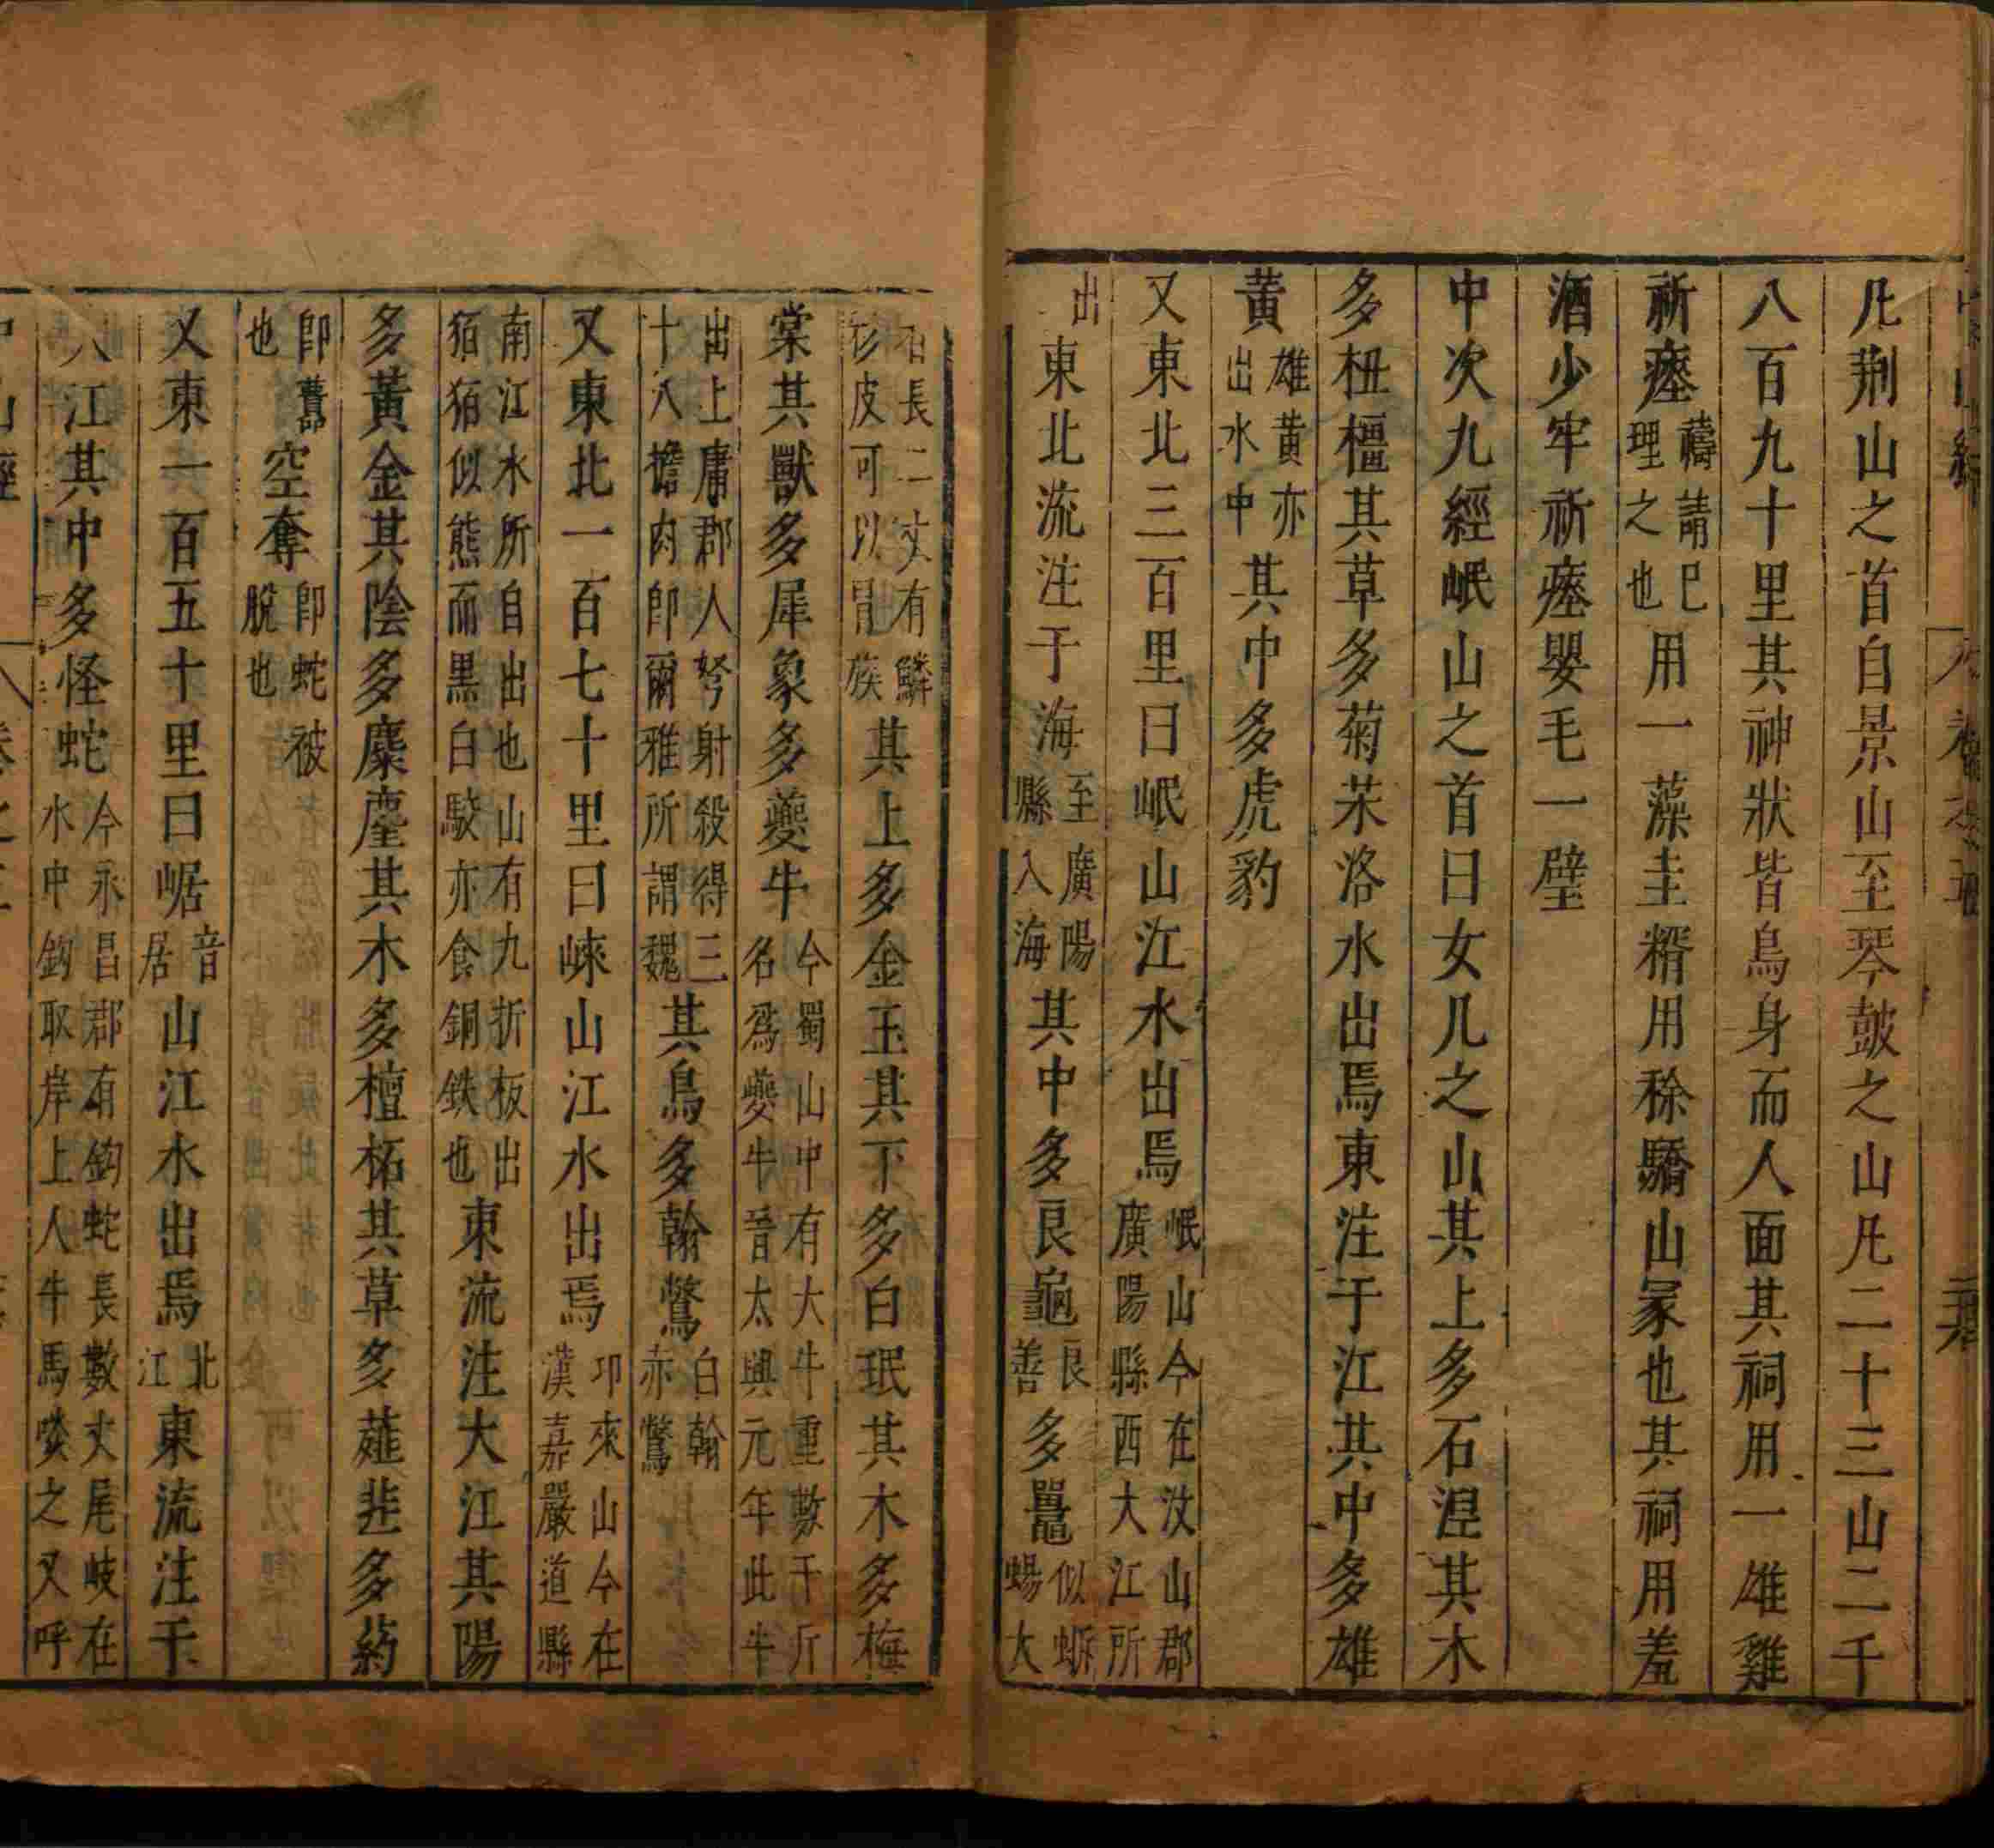 凡荆山之首自景山至琴鼓之山凡二十三山二千
八百九十里其神狀皆鳥身而人面其祠用一雄雞
祈瘞禱請巳理之也用一藻圭糈用稌驕山冢也其祠用羞
酒少牢祈瘞嬰毛一璧
中次九經岷山之首曰女几之山其上多石涅其木
多杻橿其草多菊茱洛水出焉東注于江其中多雄
黄雄黄亦出水中其中多虎豹
又東北三百里曰岷山江水出焉岷山今在汶山郡廣陽縣西大江所
出東北流注于海至廣陽縣入海其中多良龜良善多鼉似蜥蜴大
者長二丈有鱗彩皮可以冒族其上多金玉其下多白珉其木多梅
棠其獸多犀象多夔牛今蜀山中有大牛重數千斤名爲夔牛晉太興元年此牛
出上庸郡人弩射殺得三十八擔肉即爾雅所謂魏其鳥多翰鷩白翰赤鷩
又東北一百七十里曰崍山江水出焉卭來山今在漢嘉嚴道縣
南江水所自出也山有九折板出狛狛似熊而黑白駮亦食銅鉄也東流注大江其陽
多黃金其陰多麋麈其木多檀柘其草多薤韭多葯
即虈也空奪即蛇被脫也
又東一百五十里曰崌音居山江水出焉北江東流注于
大江其中多怪蛇今永昌郡有鈎蛇長數丈尾岐在水中鈎取岸上人牛馬啖之又呼